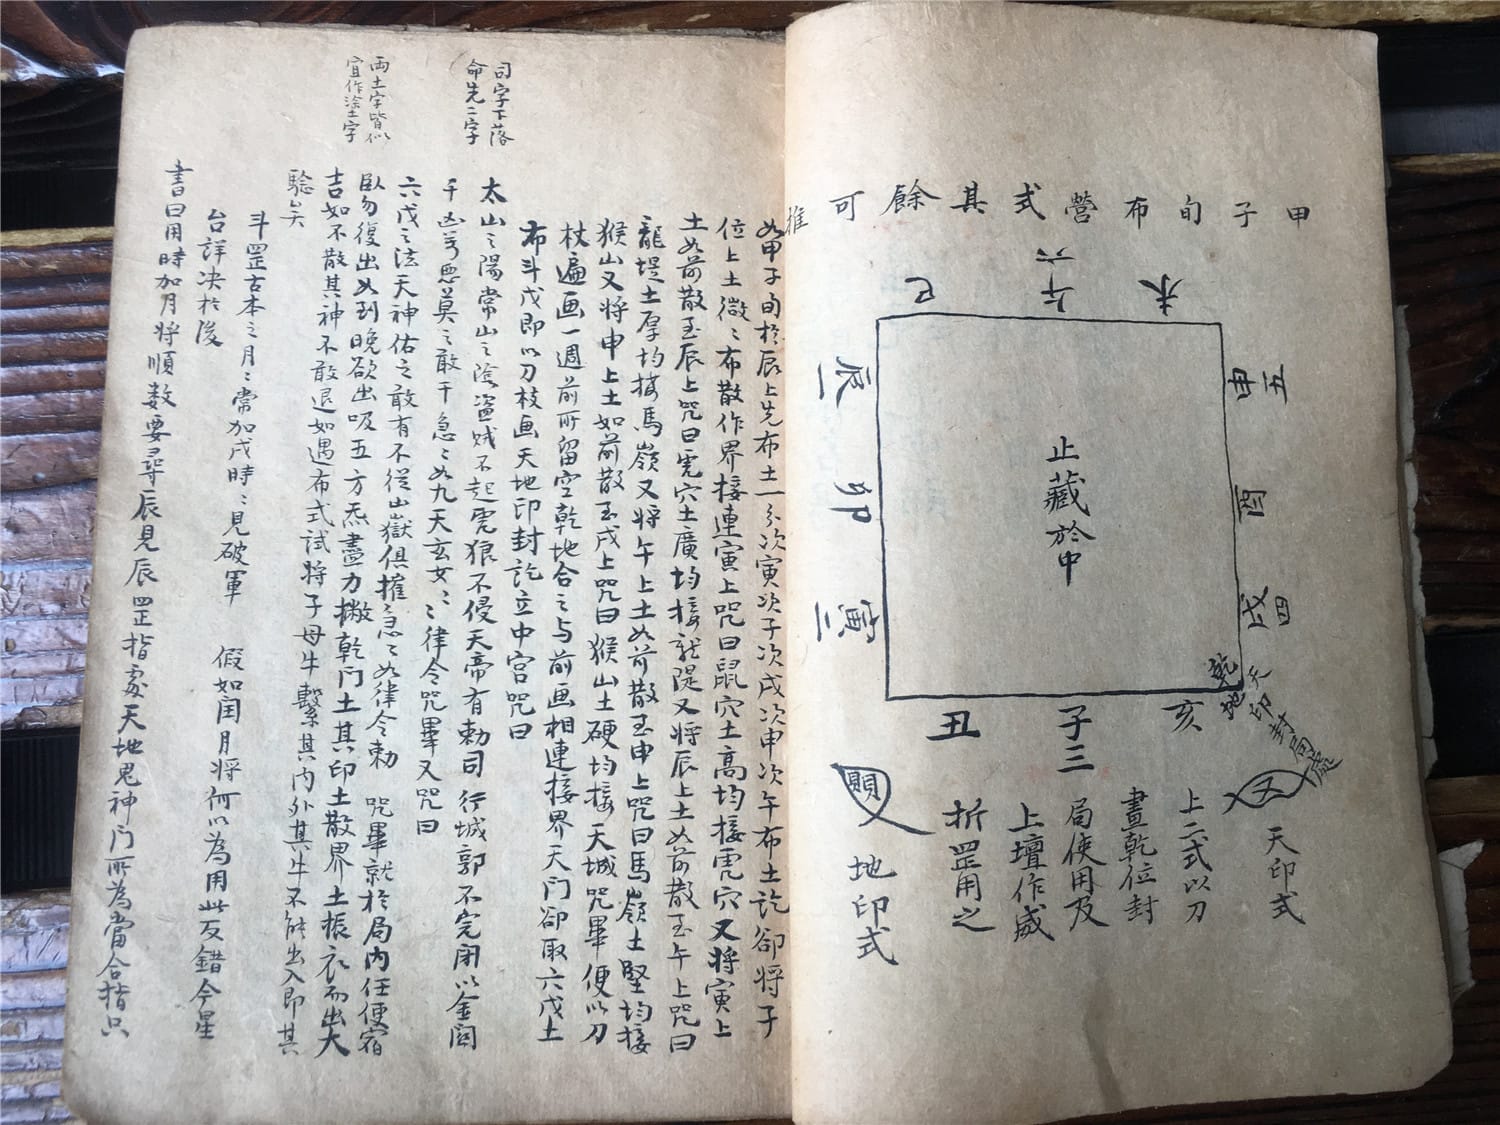 甲子旬布營式其餘可推
未
午六
巳
申五
酉
戌四
辰一
卯
寅二
亥
子三
丑
止藏於中
乾地
天印封局處
天印式
上二式以刀
畫乾位封
局使用及
上壇作威
折罡用之
地印式
如甲子旬於辰上先布土一分次寅次子次戌次申次午布土訖卻將子
位上土微〻布散作界接連寅上咒曰鼠穴土高均接虎穴又將寅上
土如前散至辰上咒曰虎穴土廣均接龍隄又將辰上土如前散至午上咒曰
龍堤土厚均接馬嶺又將午上土如前散至申上咒曰馬嶺土堅均接
猴山又將申上土如前散至戌上咒曰猴山土硬均接天城咒畢便以刀
杖遍画一週前所留空乾地合之与前画相連接界天门卻取六戊土
布斗戊即以刀枝画天地印封訖立中宮咒曰
太山之陽常山之陰盗贼不起虎狼不侵天帝有勅司行城郭不完閉以金関
千凶万惡莫之敢干急〻如九天玄女〻〻律令咒畢又咒曰
六戊之法天神佑之敢有不從山嶽俱摧急〻如律令勅 咒畢就於局内任便宿
臥勿復出如到晚欲出吸五方炁盡力撇乾门土其印土散界土振衣而出大
吉如不散其神不敢退如遇布式試將子母牛繫其内外其牛不能出入即其
驗矣
斗罡古本之月〻常加戌時〻見破軍 假如闰月將何以為用此反錯今星
台詳决於後
書曰用時加月將順数要尋辰見辰罡指處天地鬼神门所為當合指只
司字下落
命先二字
両土字皆似
宜作涂土字